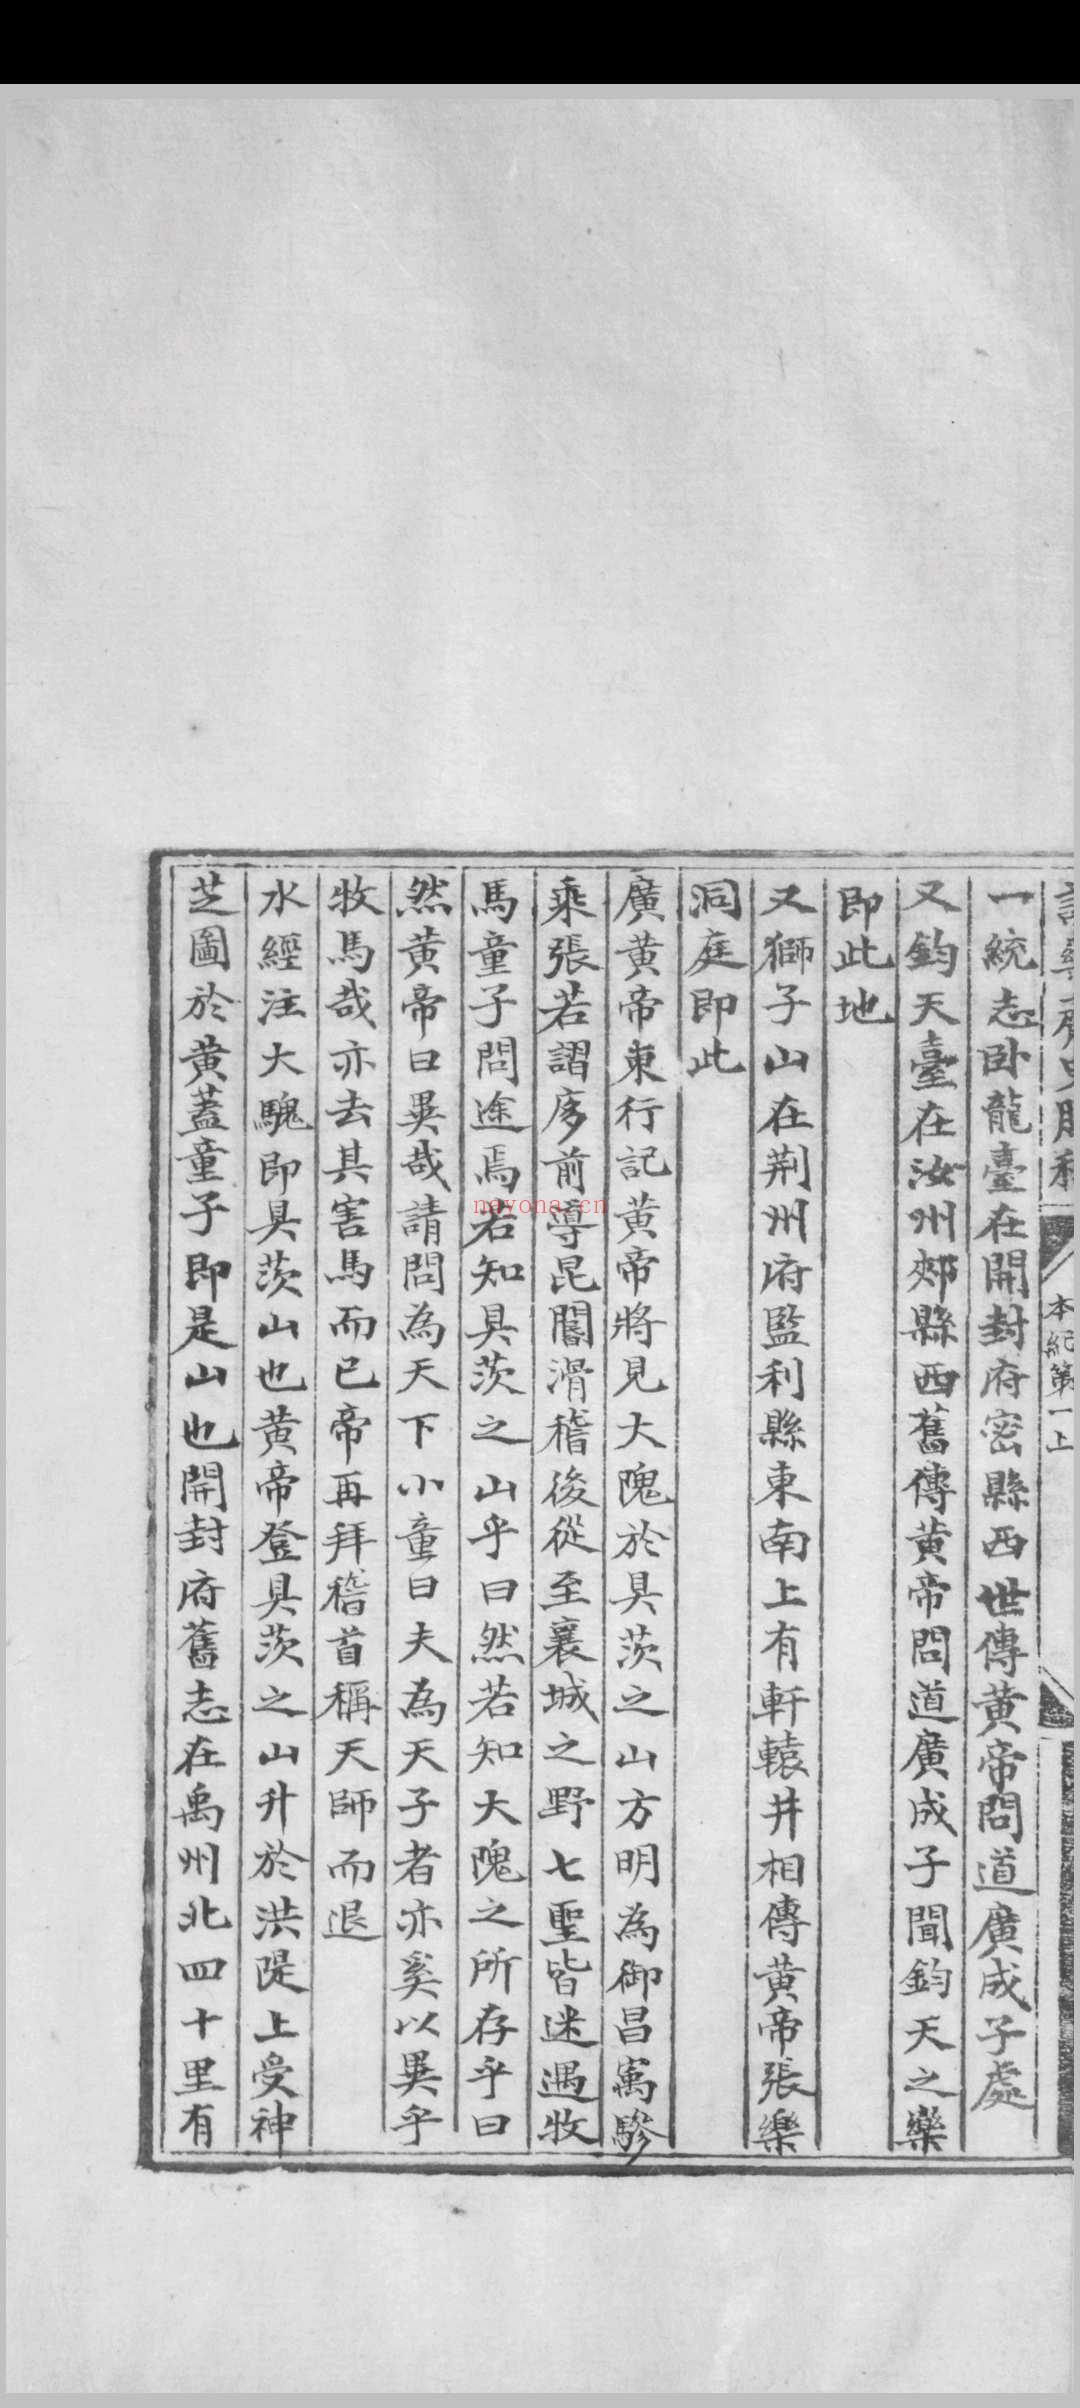 本紀第一上
一統志卧龍臺在開封府密縣西世傳黃帝問道廣成子處
又鈞天臺在汝州郟縣西舊傳黃帝問道廣成子聞鈞天之樂
即此地
又獅子山在荆州府監利縣東南上有軒轅井相傳黃帝張樂
洞庭即此
廣黃帝東行記黃帝將見大隗於具茨之山方明為御昌寓驂
乘張若謵𢈔前導昆閽滑稽後從至襄城之野七聖皆迷遇牧
馬童子問途焉若知具茨之山乎曰然若知大隗之所存乎曰
然黃帝曰異哉請問為天下小童曰夫為天子者亦奚以異乎
牧馬哉亦去其害馬而已帝再拜稽首稱天師而退
水經注大騩即具茨山也黃帝登具茨之山升於洪隄上受神
芝圖於黃蓋童子即是山也開封府舊志在禹州北四十里有
nayona.cn